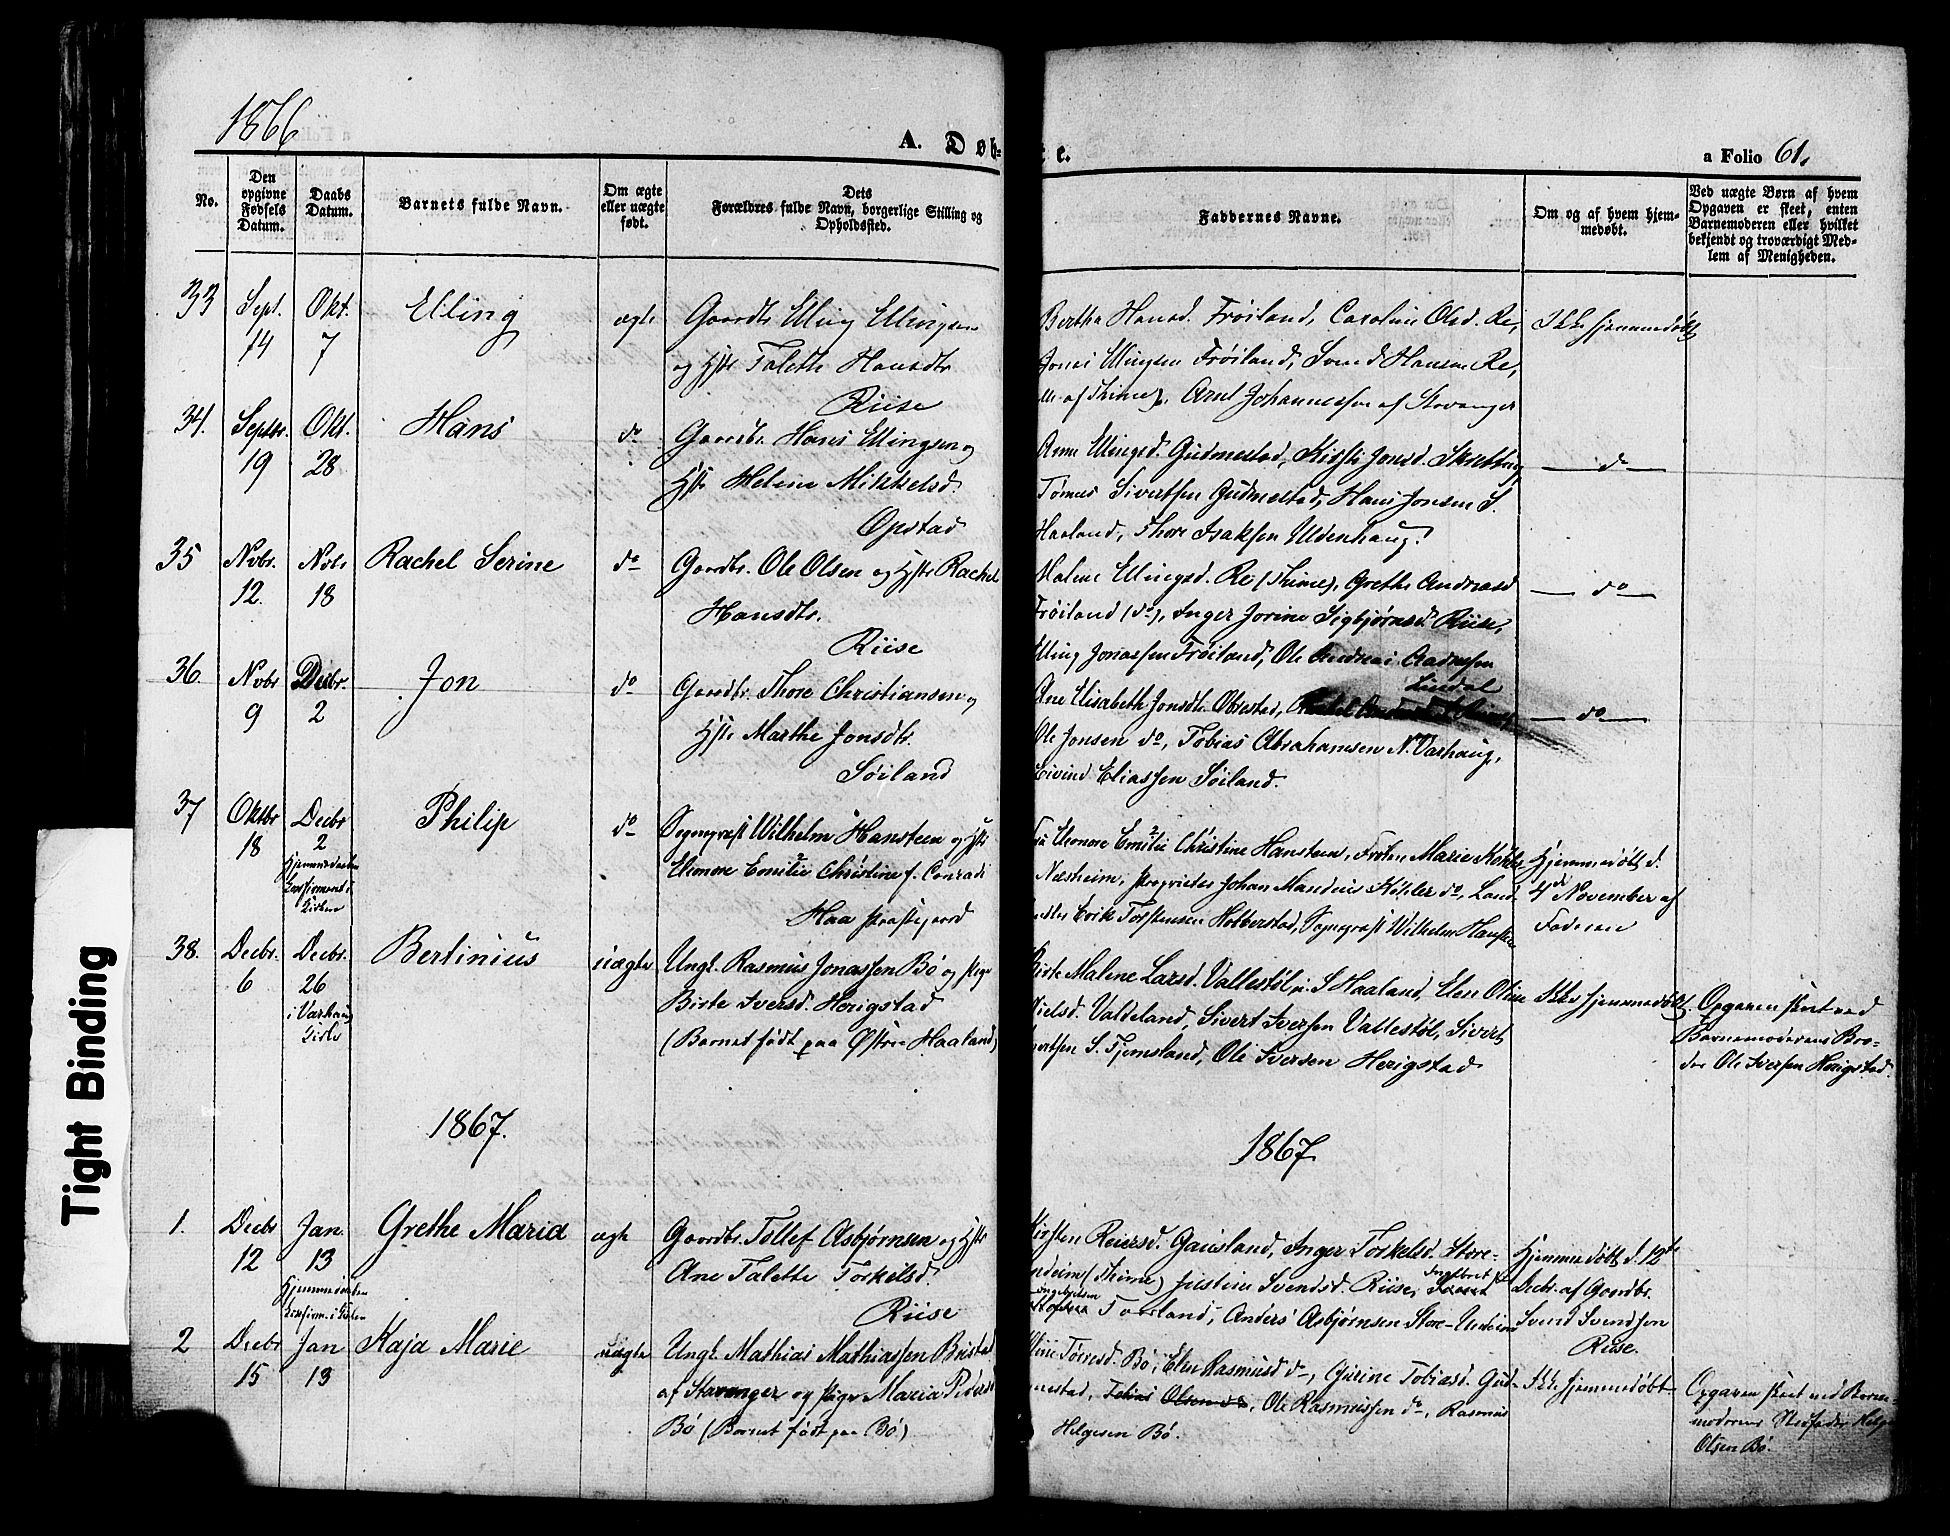 1866
A. Døb-
te.
a Folio 61.
No.
Den opgivne Fødsels Datum.
Daabs Datum.
Barnets fulde Navn.
Om ægte eller uægte født.
Dets Forældres fulde Navn, borgerlige Stilling og Opholdssted.
Faddernes Navne.
Om og af hvem hjemmedøbt.
Ved uægte Børn af hvem Opgaven er skeet, enten Barnemoderen eller hvilket bekjendt og troværdigt Medlem af Menigheden.
33 Sept. 14 Okt. 7 Elling ægte Gaardbr Elling Ellingsen
og Hstr Talethe Hansdtr
Riise
Bertha Hansd. Frøiland, Caroline Olsd. Re,
Jonas Ellingsen Frøiland, Svend Hansen Re,
af Thime, Arnt Johannessen af Stavanger
Ikke hjemmedøbt
34. Septbr. 19 Okt. 28 Hans do Gaardbr. Hans Ellingsen og
Hstr Helene Mikkelsd.
Opstad
Anne Ellingsd. Gudmestad, Kirsti Jonsd. Skretting
Tønnes Sivertsen Gudmestad, Hans Jonsen S.
Haaland, Thore Isaksen Uldenhaug.
do
35 Novbr. 12. Novbr 18 Rachel Serine do Gaardbr. Ole Olsen og Hstr Rachel
Hansdtr.
Riise
Malene Ellingsd. Re (Thime), Grethe Andreasd
Frøiland (do), Inger Jorine Sigbjørnsd Riise,
Elling Jonassen Frøiland, Ole Andreas Aadnesen
Lindal
do
36. Novbr 9 Decbr. 2 Jon do Gaardbr. Thore Christiansen og
Hstr Marthe Jonsdtr.
Søiland
Ane Elisabeth Jonsdtr. Obrestad,
Ole Jonsen do, Tobias Abrahamsen N. Varhaug,
Eivind Eliassen Søiland.
do
37 Oktbr 18 Decbr 2 Hjemmedaaben Confirmeret i Kirken Philip do Sognepræst Wilhelm Hansteen og Hstr
Eleonore Emilie Christine f. Conradi
Haa Præstegaard
Fru Eleonore Emilie Christine Hansteen, Frøken Marie Køhler
Næsheim, Proprietær Johan Mandius Køhler do, Land-
Erik Torstensen Hobberstad, Sognepræst Wilhelm Hansteen
Hjemmedøbt d.
4de November af
Faderen
38. Decbr. 6 Decbr. 26 i Varhaug Kirke Bertinius uægte Ungk. Rasmus Jonassen Bø og Pige
Birte Iversd. Herigstad
(Barnet født paa Østre Haaland)
Birte Malene Larsd. Vallestøl S Haaland, Elen Oline
Nielsd. Valdeland, Sivert Iversen Vallestøl, Sivert
S. Tjemsland, Ole Iversen Herigstad
Ikke hjemmedøbt.
Opgaven skeet ved
Barnemoderens Bro-
der Ole Iversen Herigstad.
1867.
1867
1. Decbr 12 Jan. 13 Hjemmedaaben Confirm. i Kirken Grethe Maria ægte Gaardbr. Tollef Asbjørnsen og Hstr
Ane Talette Torkelsd.
Riise
Kirsten Reiersd. Gausland, Inger Torkelsd. Store-
Undeim (Thime) Justine Svendsd. Riise,
Taarland, Anders Asbjørnsen Store-Undeim
Hjemmedøbt d. 12te
Decbr. af Gaardbr.
Svend Svendsen
Riise.
2 Decbr 15 Jan 13 Kaja Marie uægte Ungk. Mathias Mathiassen Bristad
af Stavanger og Pige Maria Pedersd
Bø (Barnet født paa Bø)
Tørresd. Bø, Elen Rasmusd do, Gurine Tobiasd. Gud-
mestad, Tobias Olsen do, Ole Rasmussen do, Rasmus
Helgesen Bø.
Ikke hjemmedøbt
Opgaven skeet ved Barne-
moderens Stedfader Helge
Olsen Bø.
Tight Binding